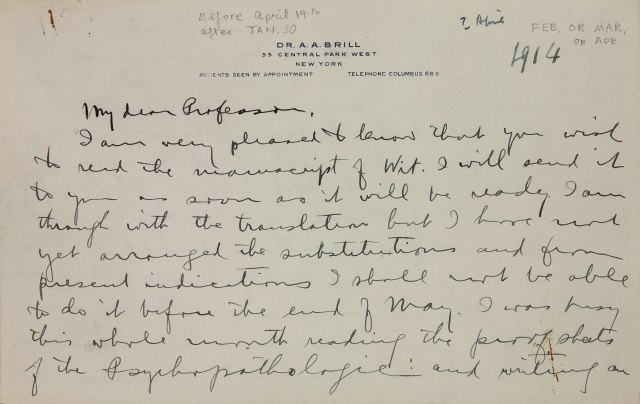 Before April 19th
after JAN. 30
? April
FEB. OR MAR.
OR APR
1914
DR. A. A. BRILL
55 CENTRAL PARK WEST
NEW YORK
PATIENTS SEEN BY APPOINTMENT TELEPHONE COLUMBUS 685
My dear Professor,
I am very pleased to know that you wish
to read the manuscript of Wit. I will send it
to you as soon as it will be ready. I am
through with the translation but I have not
yet arranged the substitutions and from
present indications I shall not be able
to do it before the end of May. I was busy
this whole month reading the proof sheets
of the Psychopathologie: and writing an